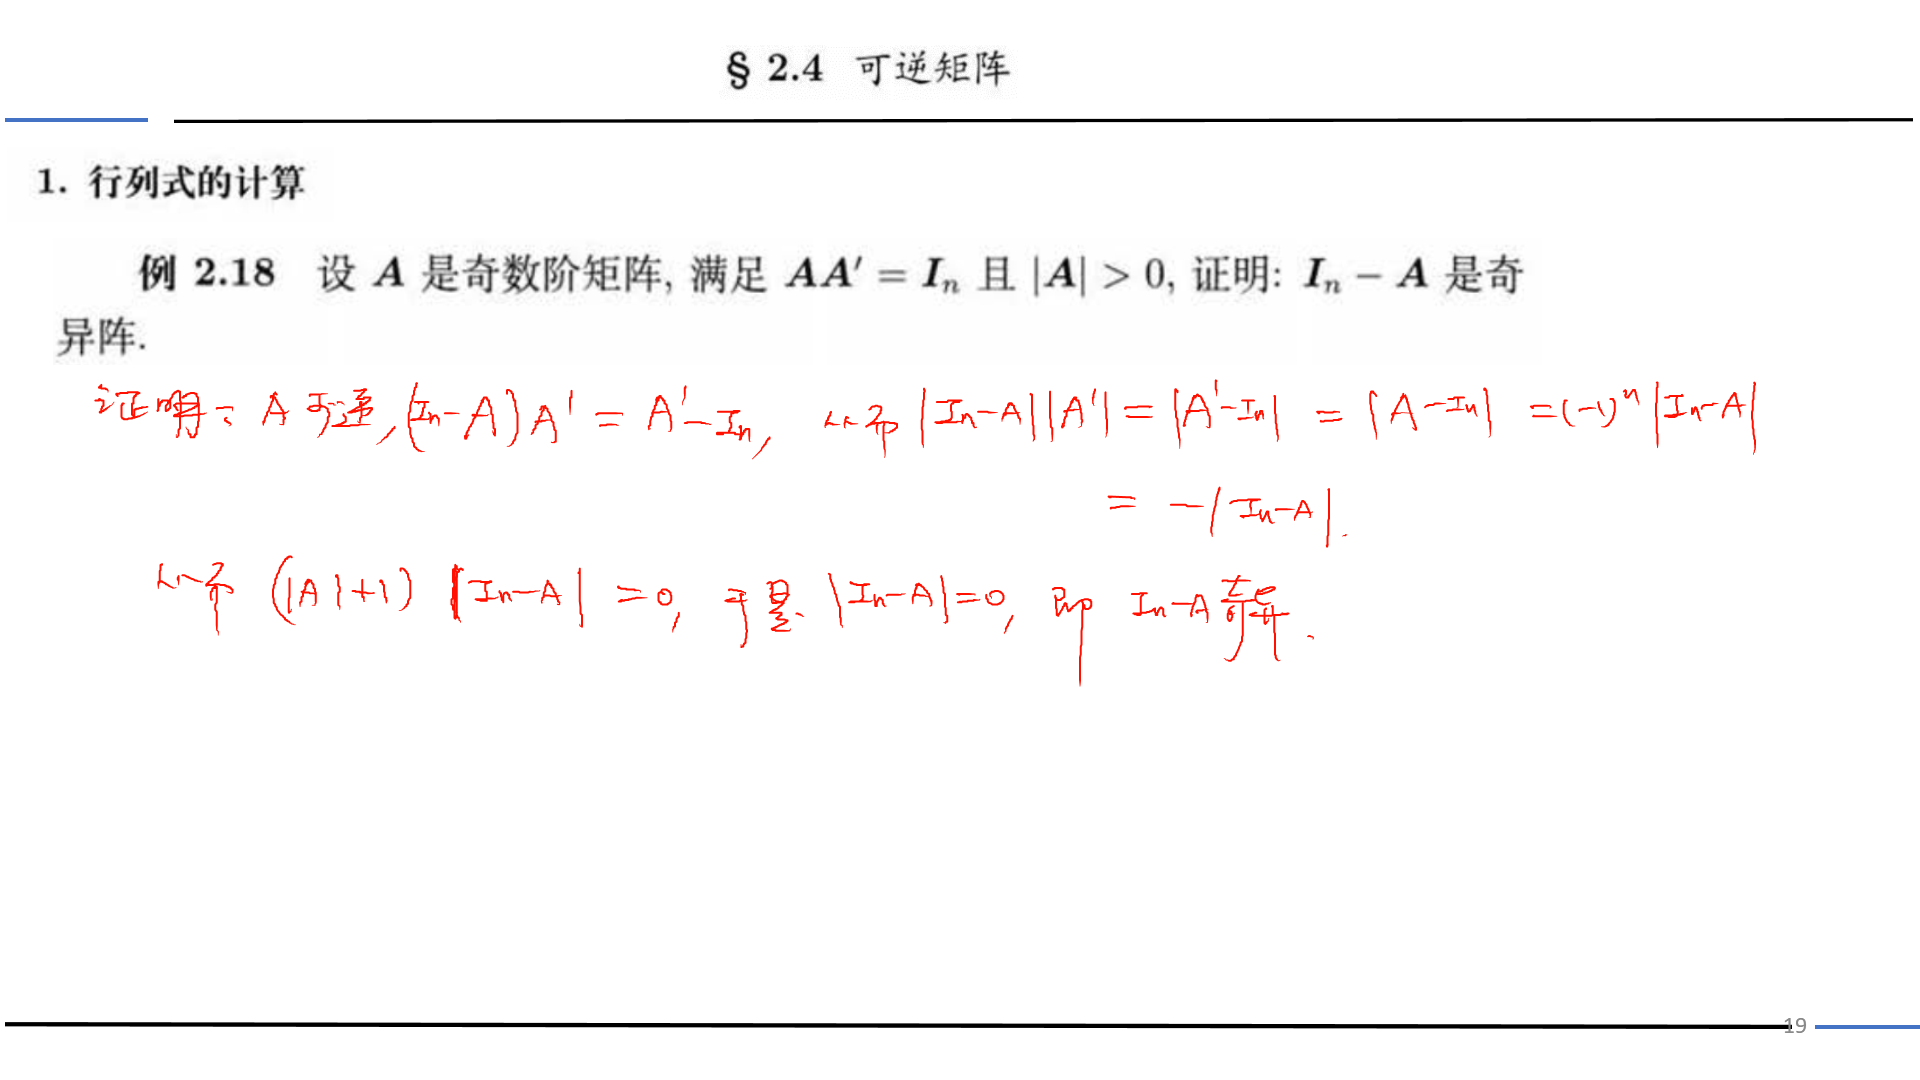 § 2.4 可逆矩阵
1. 行列式的计算
例 2.18 设 A 是奇数阶矩阵, 满足 AA′ = Iₙ 且 |A| > 0, 证明: Iₙ − A 是奇
异阵.
证明: A 可逆, (In-A)A' = A'-In, 从而 |In-A||A'| = |A'-In| = |A-In| = (-1)ⁿ|In-A|
= -|In-A|.
从而 (|A|+1) |In-A| = 0, 于是 |In-A|=0, 即 In-A 奇异.
19